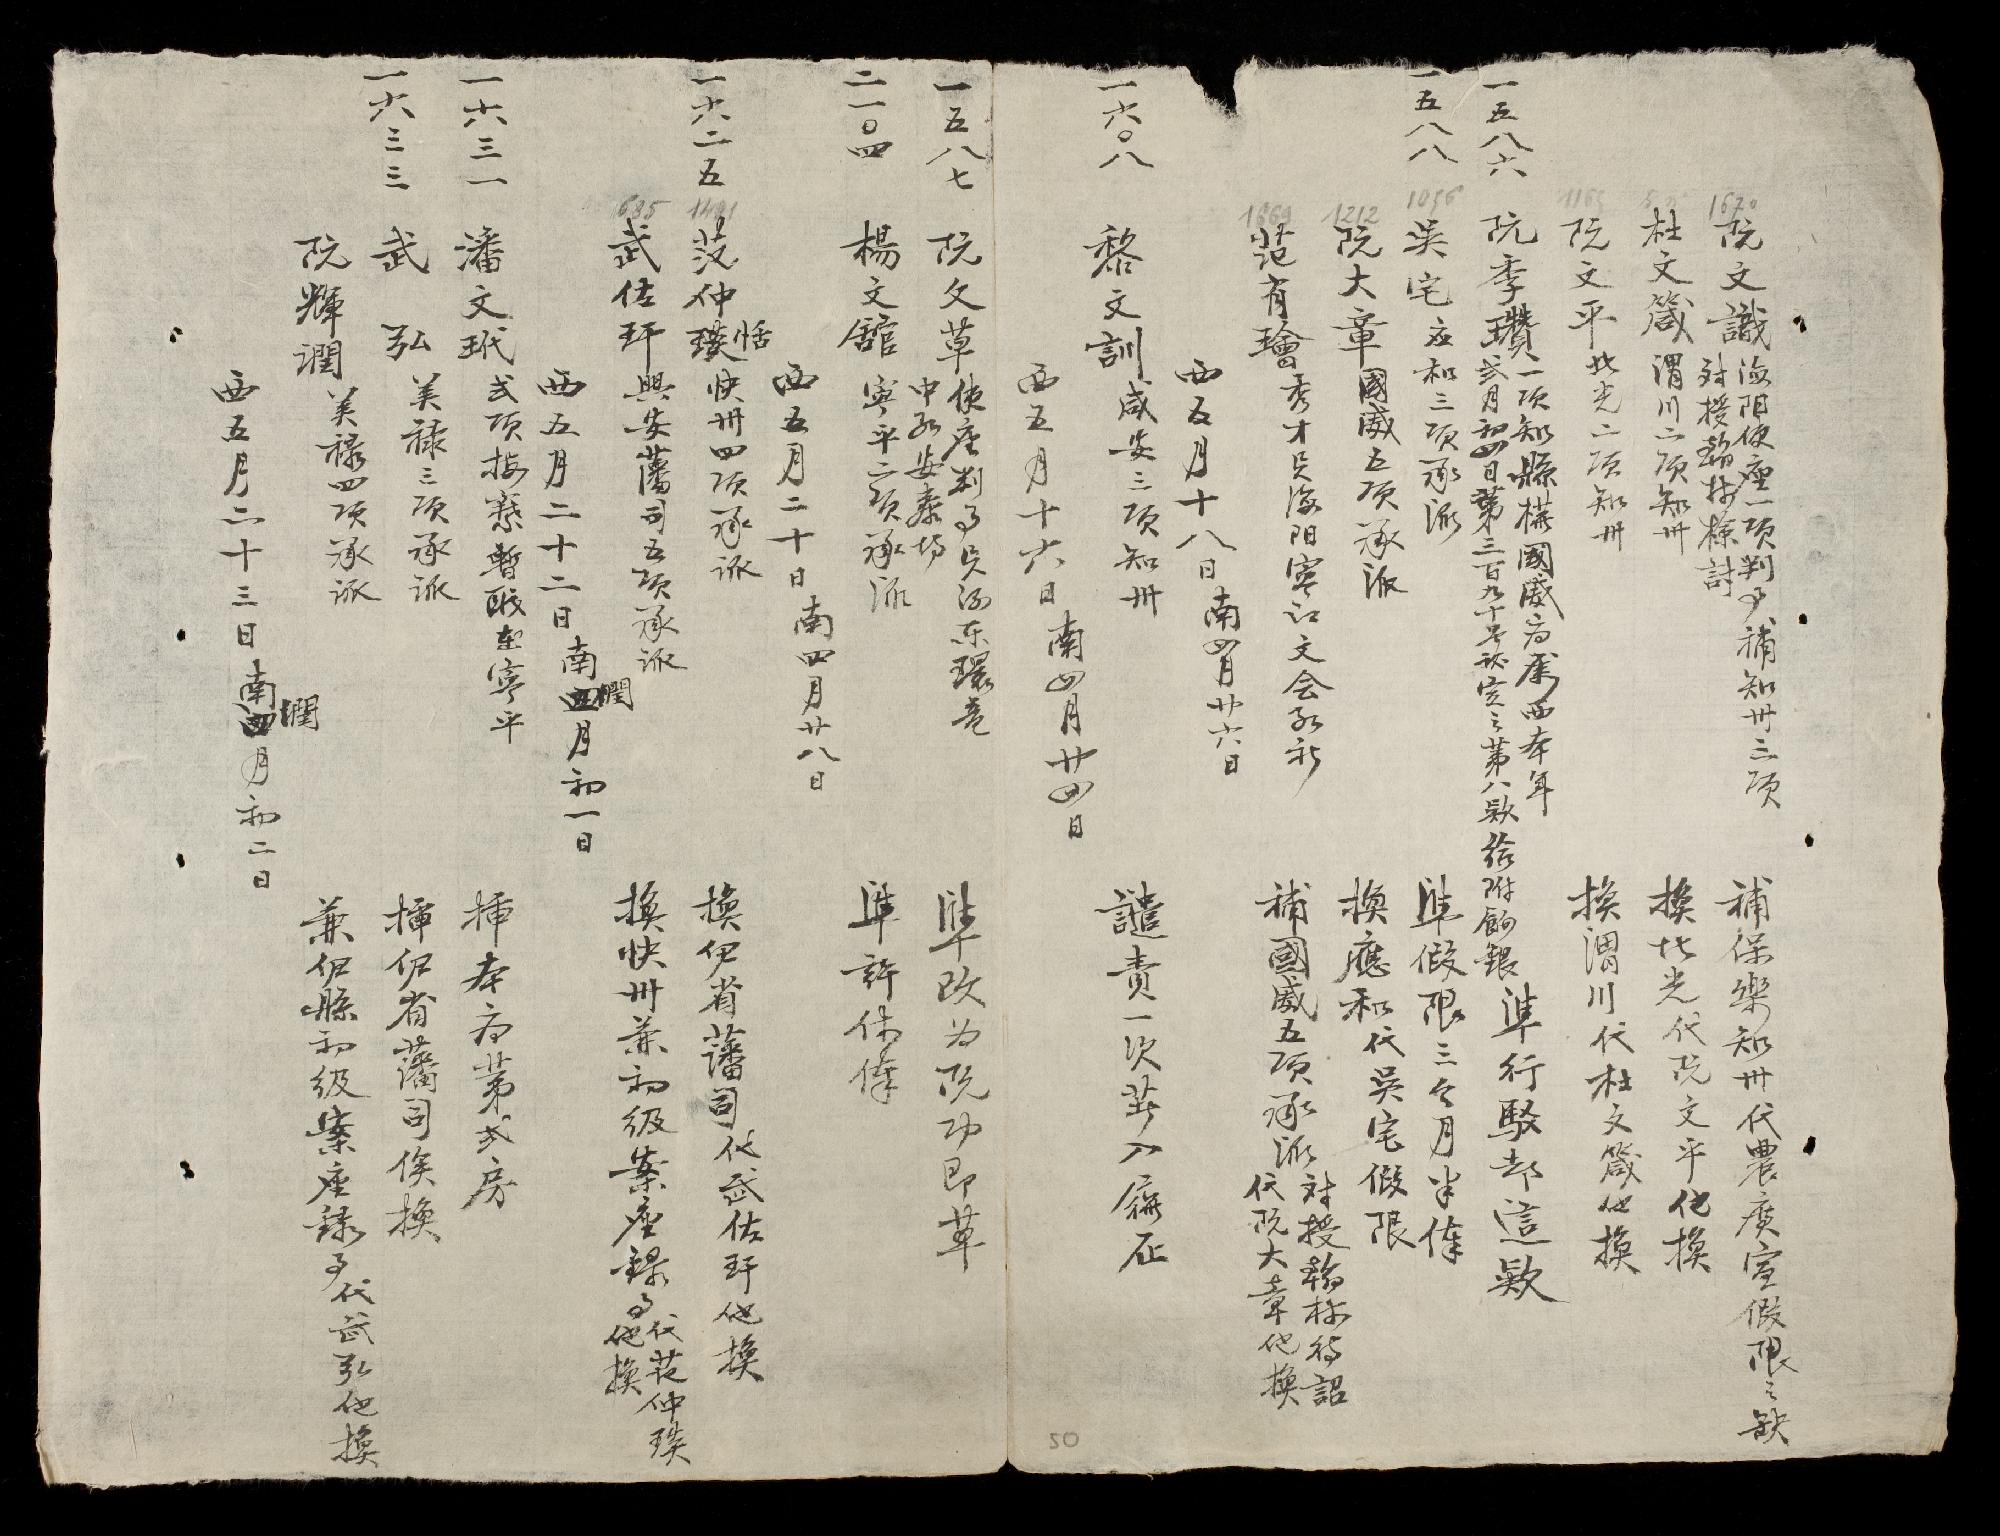 1670
阮文識 海阳使座一项判事補知州三项 補保樂知州代農廣宣假限之缺
对授翰林檢討
杜文箴 渭川二项知州 換北光代阮文平他換
1165
阮文平 北光二项知州 換渭川代杜文箴他換
一五八六 阮季瓚 一项知縣横國威府属西本年
弍月初四日第三百九十号议定之第八欵給附餉銀 準行駁却這欵
一五八八
1056
吴宅 应和三项承派 準假限三个月半俸
1212
阮大章 國威五项承派 換應和代吴宅假限
1669
范有璯 秀才 海阳寧江文会 補國威五项承派 对授翰林待詔
代阮大章他換
西五月十八日南四月廿六日
一六〇八 黎文訓 咸安三项知州 譴責一次
西五月十六日南四月廿四日
一五八七 阮文草 使座判事 準改为阮功即草
二一〇四 楊文舘 寧平二项承派 準許休俸
西五月二十日南四月廿八日
一六二五
1491
范仲瑛 恬 快州四项承派 換伊省藩司代武佐玕他換
1685
武佐玕 興安藩司五项承派 換快州兼初级案座録事代范仲瑛
他換
西五月二十二日南閏四月初一日
一六三一 潘文玳 弍项 暫 在寧平 揷本府第弍房
一六三三 武弘 美禄三项承派 揷伊省藩司俟換
阮輝潤 美禄四项承派 兼伊縣初级案座録事代武弘他換
西五月二十三日南閏四月初二日
50